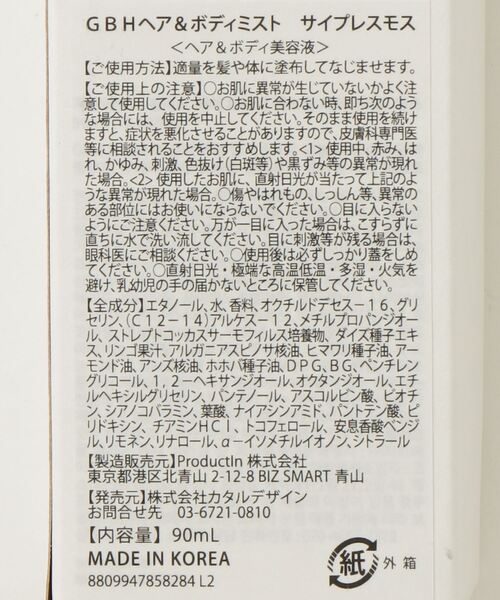 GBHヘア＆ボディミスト　サイプレスモス
＜ヘア＆ボディ美容液＞
【ご使用方法】適量を髪や体に塗布してなじませます。
【ご使用上の注意】○お肌に異常が生じていないかよく注
意して使用してください。○お肌に合わない時、即ち次のよう
な場合には、使用を中止してください。そのまま使用を続け
ますと、症状を悪化させることがありますので、皮膚科専門医
等に相談されることをおすすめします。<1> 使用中、赤み、は
れ、かゆみ、刺激、色抜け(白斑等)や黒ずみ等の異常が現れ
た場合。<2> 使用したお肌に、直射日光が当たって上記のよ
うな異常が現れた場合。○傷やはれもの、しっしん等、異常の
ある部位にはお使いにならないでください。○目に入らない
ようにご注意ください。万が一目に入った場合は、こすらずに
直ちに水で洗い流してください。目に刺激等が残る場合は、
眼科医にご相談ください。○使用後は必ずしっかり蓋をしめ
てください。○直射日光・極端な高温低温・多湿・火気を
避け、乳幼児の手の届かないところに保管してください。
【全成分】エタノール、水、香料、オクチルドデセス－１６、グリ
セリン、（Ｃ１２－１４）アルケス－１２、メチルプロパンジオー
ル、ストレプトコッカスサーモフィルス培養物、ダイズ種子エキ
ス、リンゴ果汁、アルガニアスピノサ核油、ヒマワリ種子油、アー
モンド油、アンズ核油、ホホバ種子油、ＤＰＧ、ＢＧ、ペンチレン
グリコール、１，２－ヘキサンジオール、オクタンジオール、エチ
ルヘキシルグリセリン、パンテノール、アスコルビン酸、ビオチ
ン、シアノコバラミン、葉酸、ナイアシンアミド、パントテン酸、ピ
リドキシン、チアミンＨＣＩ、トコフェロール、安息香酸ベンジ
ル、リモネン、リナロール、α－イソメチルイオノン、シトラール
【製造販売元】ProductIn 株式会社
東京都港区北青山 2-12-8 BIZ SMART 青山
【発売元】株式会社カタルデザイン
お問合せ先　03-6721-0810
【内容量】90mL
MADE IN KOREA
8809947858284 L2
紙 外箱